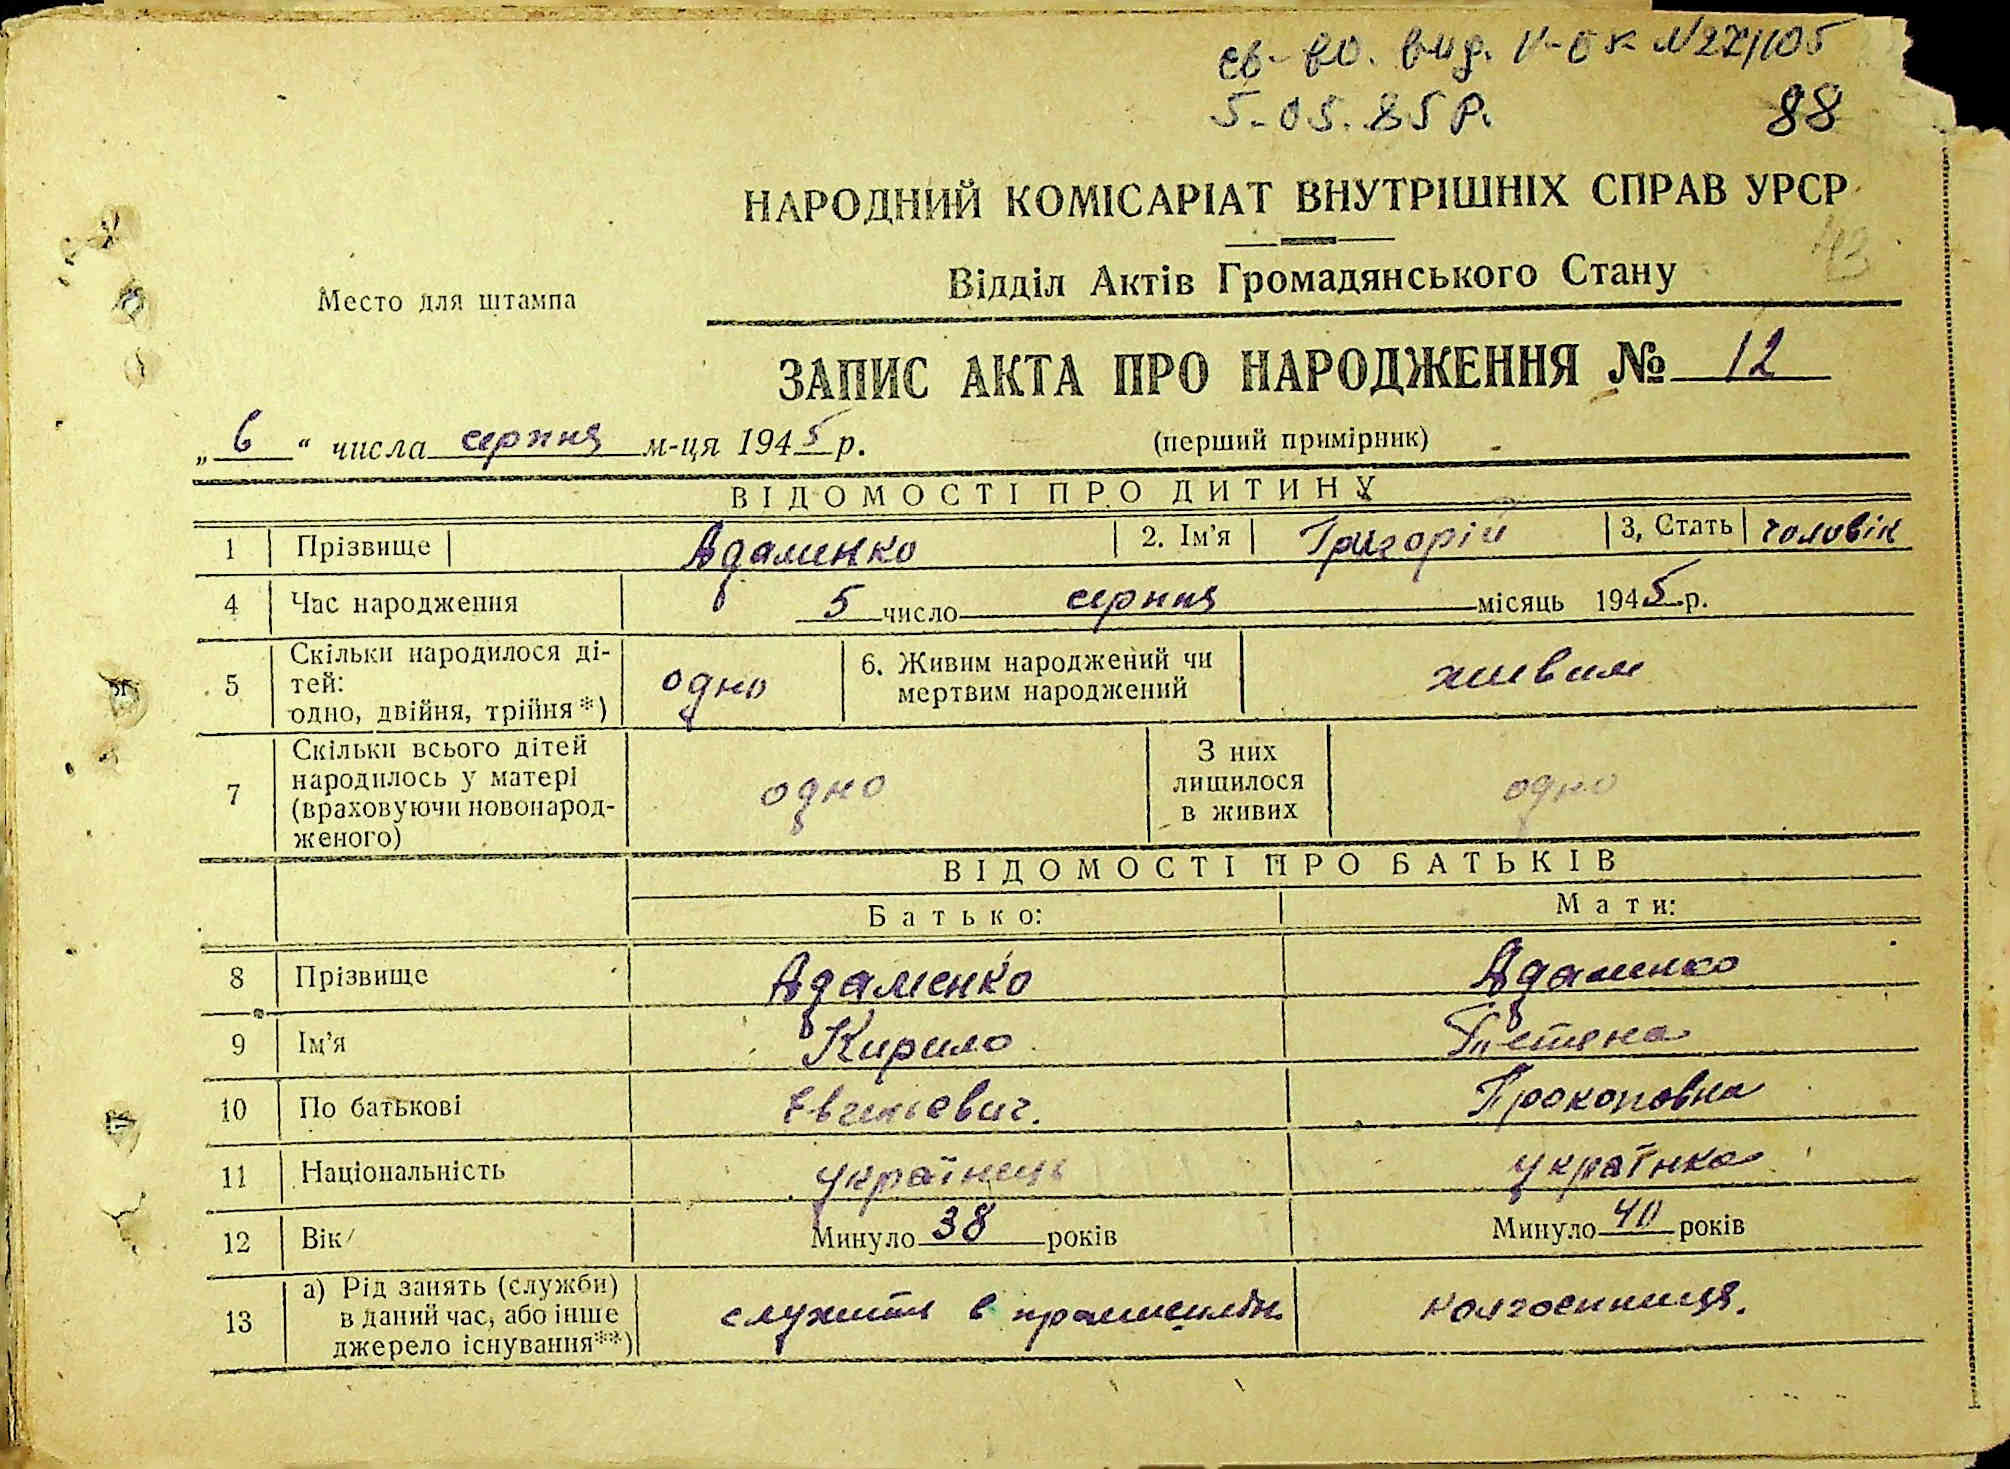 св-во. вид. V-БК №
5-05.85 р.
88
НАРОДНИЙ КОМІСАРІАТ ВНУТРІШНІХ СПРАВ УРСР
43
Відділ Актів Громадянського Стану
Место для штампа
ЗАПИС АКТА ПРО НАРОДЖЕННЯ № 12
„ 6 “ числа серпня м-ця 1945 р.
(перший примірник)
ВІДОМОСТІ ПРО ДИТИНУ
1 Прізвище Адаменко 2. Ім'я Григорій 3, Стать чоловік
4 Час народження 5 число серпня місяць 1945 р.
5 Скільки народилося ді-
тей:
одно, двійня, трійня*)
одно
6. Живим народжений чи
мертвим народжений
живим
7 Скільки всього дітей
народилось у матері
(враховуючи новонарод-
женого)
одно
З них
лишилося
в живих
одно
ВІДОМОСТІ ПРО БАТЬКІВ
Батько: Мати:
8 Прізвище Адаменко Адаменко
9 Ім'я Кирило Тетяна
10 По батькові Евгенієвич. Прокоповна
11 Національність українець українка
12 Вік Минуло 38 років Минуло 40 років
13 а) Рід занять (служби)
в даний час, або інше
джерело існування**)
служить в
колгоспниця.